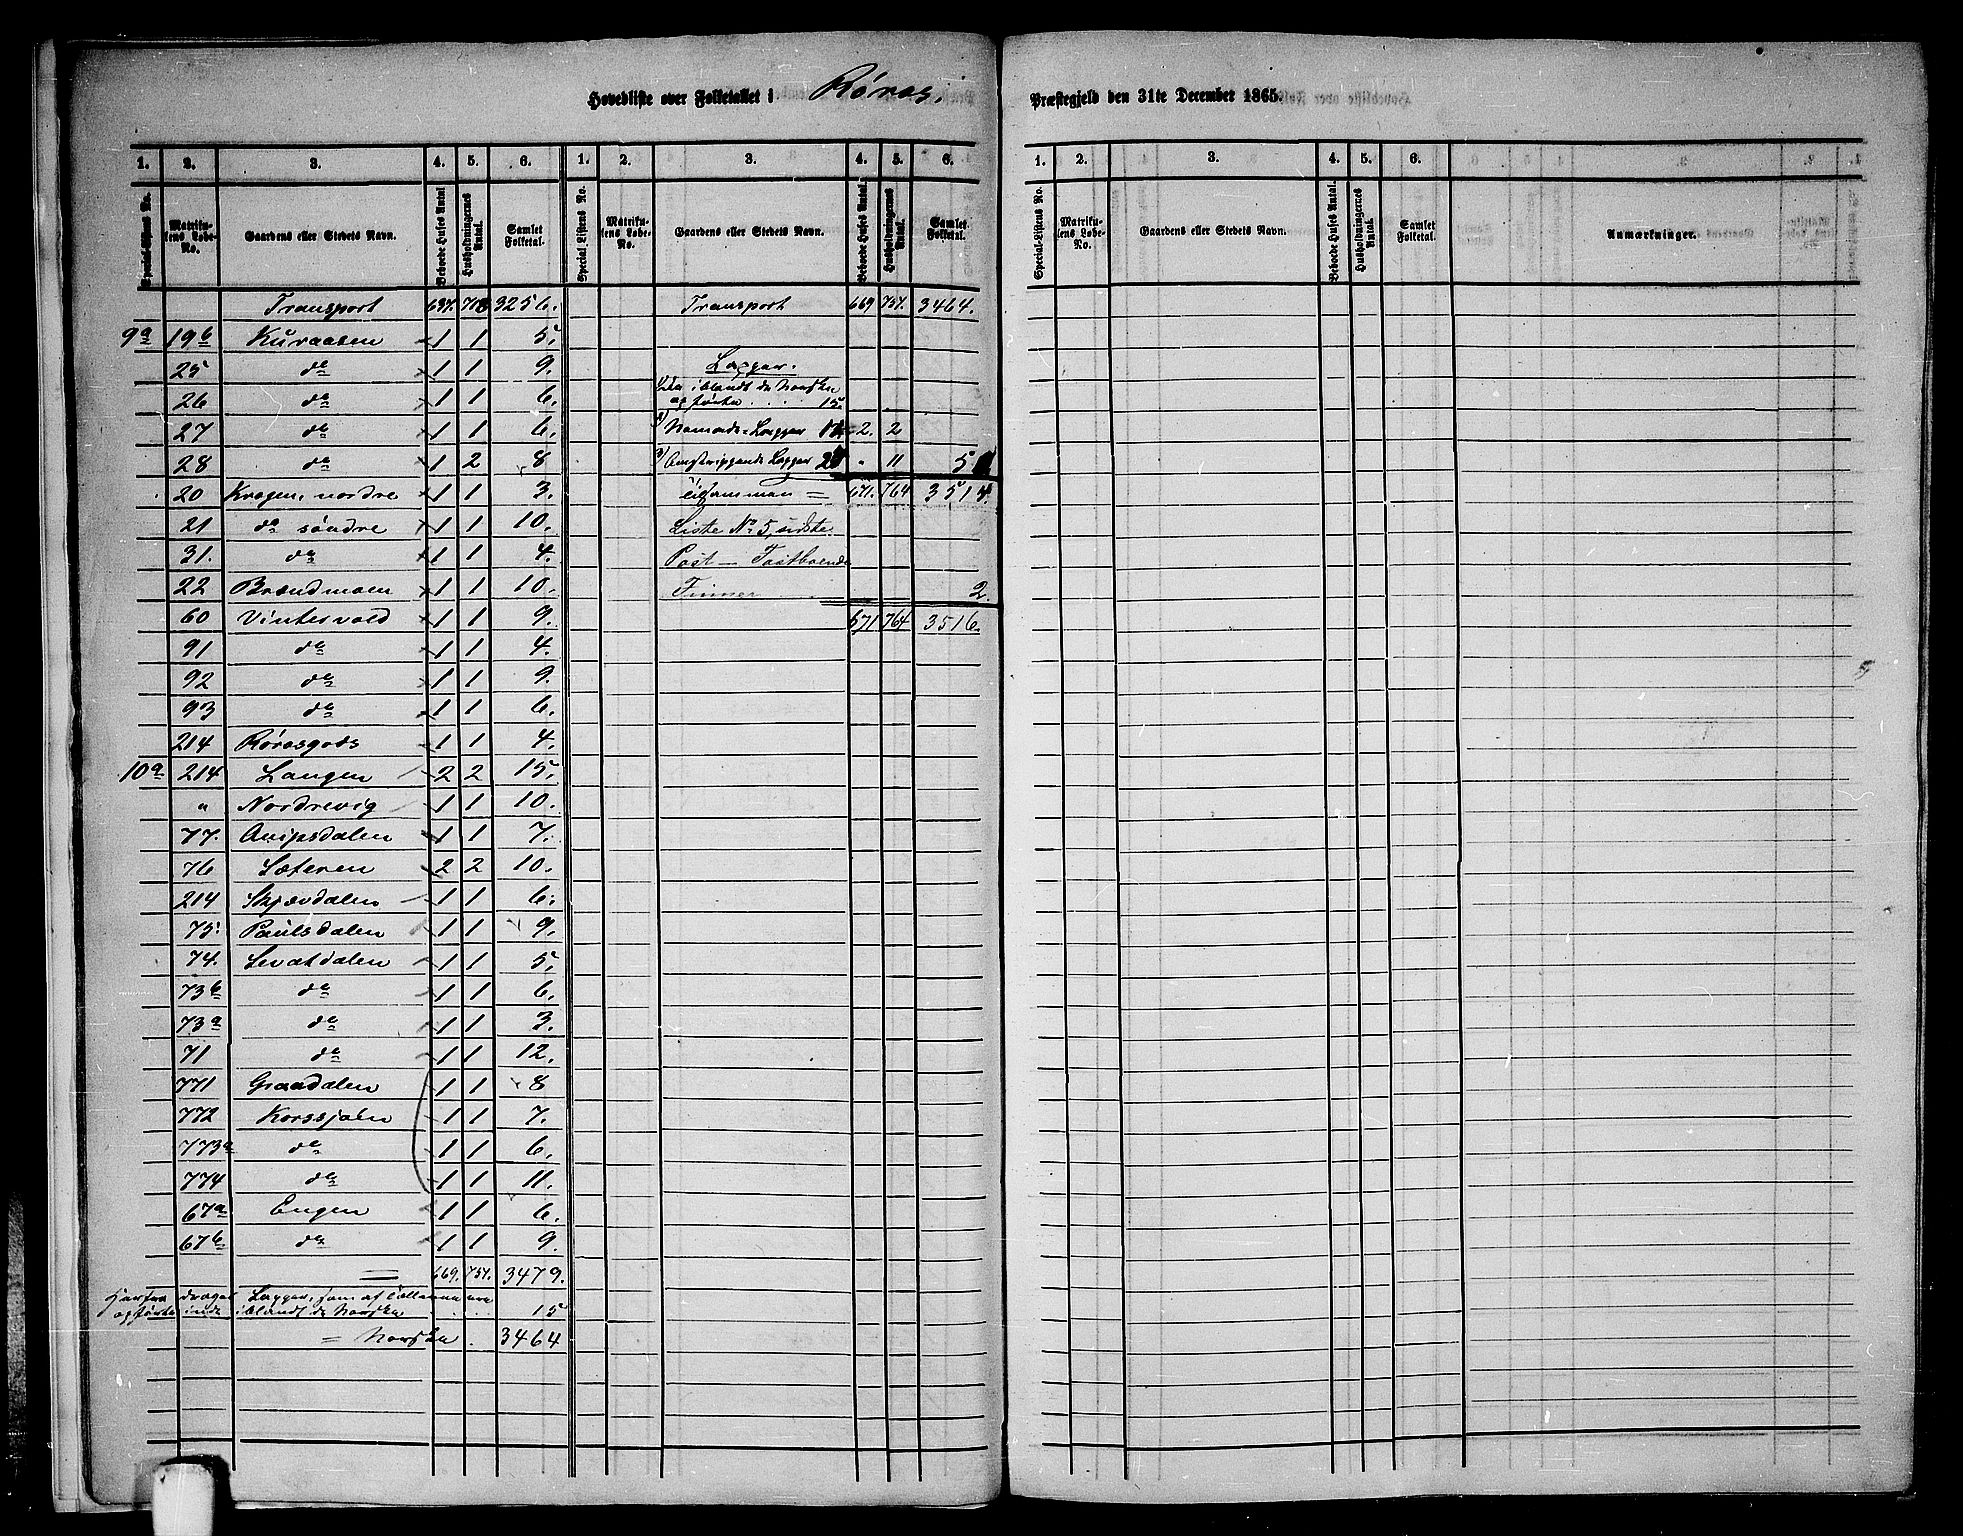 Hovedliste over Folketallet i Røros. Præstegjeld den 31te December 1865.
1. 2. 3. 4. 5. 6. 1. 2. 3. 4. 5. 6. 1. 2. 3. 4. 5. 6.
Special-Listens No. Matrikulens Løbe-No. Gaardens eller Stedets Navn. Beboede Huses Antal. Husholdningernes Antal. Samlet Folketal.
Special-Listens No. Matrikulens Løbe-No. Gaardens eller Stedets Navn. Beboede Huses Antal. Husholdningernes Antal. Samlet Folketal.
Special-Listens No. Matrikulens Løbe-No. Gaardens eller Stedets Navn. Beboede Huses Antal. Husholdningernes Antal. Samlet Folketal. Anmærkninger.
Transport 3256.
9a 19b Kuraasen 1 1 5.
25 do 1 1 9.
26 do 1 1 6.
27 do 1 1 6.
28 do 1 2 8
20 Kragen, nordre 1 1 3.
21 do søndre 1 1 10.
31. do 1 1 4.
22 Brændmoen 1 1 10.
60 Vintervold 1 1 9.
91 do 1 1 4.
92 do 1 1 9.
93 do 1 1 6.
214 Rørosgods 1 1 4.
10a 214 Langen 2 2 15.
" Nordrevig 1 1 10.
77. 1 1 7.
76 Sæteren 2 2 10.
214 Skjævdalen 1 1 6.
75. Paulsdalen 1 1 9.
74. Sevatdalen 1 1 5.
73b do 1 1 6.
73a do 1 1 3.
71 do 1 1 12.
771 Graadalen 1 1 8
772 Korssjøen 1 1 7.
773a do 1 1 6.
774 do 1 1 11.
67a Engen 1 1 6.
67b do 1 1 9.
= 669. 757. 3479.
Herfra drages Lapper, som af
opførte inde iblandt de Norske 15
= Norske . 3464
Transport 669 757. 3464.
Lapper.
iblandt de Norske
opførte . . . . 15.
2) Nomade-Lapper 2. 2
3) Omstrippende Lapper " 11
tilsammen = 671. 764 3514.
Liste No 5, sidste
Post — Fastboende
Finner . . . 2.
671 764 3516.